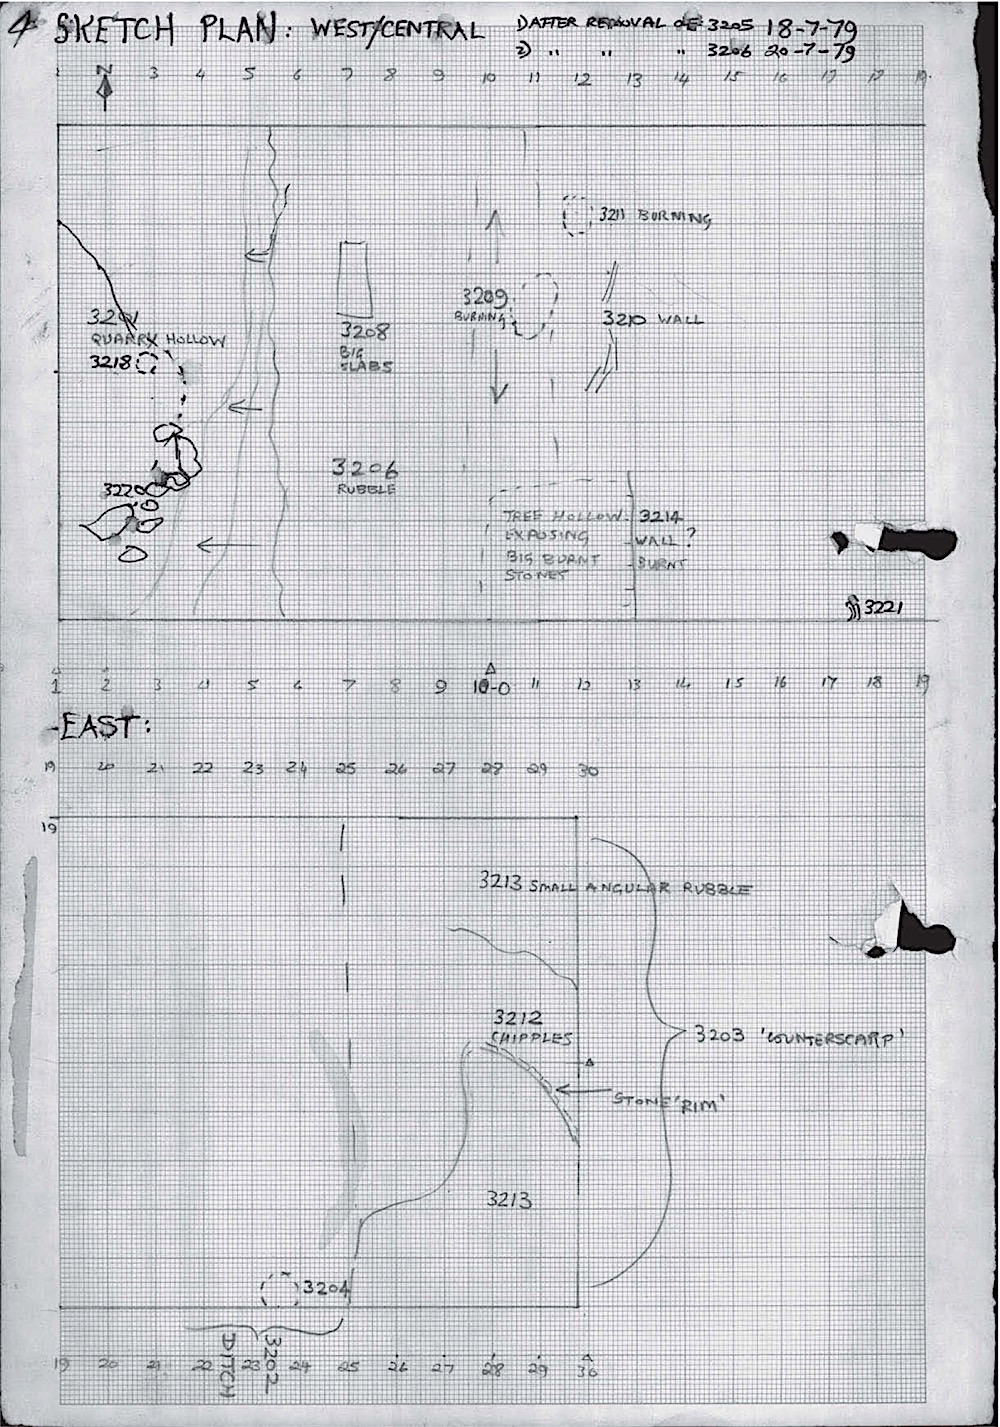 4 SKETCH PLAN: WEST/CENTRAL
1) AFTER REMOVAL OF 3205 18-7-79
2) " " " 3206 20-7-79
N
1 3 4 5 6 7 8 9 10 11 12 13 14 15 16 17 19
3211 BURNING
3209
BURNING
3210 WALL
3201
QUARRY HOLLOW
3218
3208
BIG
SLABS
3206
RUBBLE
3220
TREE HOLLOW
EXPOSING
BIG BURNT
STONES
3214
WALL?
BURNT
3221
1 2 3 4 5 6 7 8 9 10-0 11 12 13 14 15 16 17 18 19
EAST:
19 20 21 22 23 24 25 26 27 28 29 30
19
3213 SMALL ANGULAR RUBBLE
3212
CHIPPLES
3203 'COUNTERSCARP'
STONE 'RIM'
3213
3204
3202
DITCH
19 20 21 22 23 24 25 26 27 28 29 30